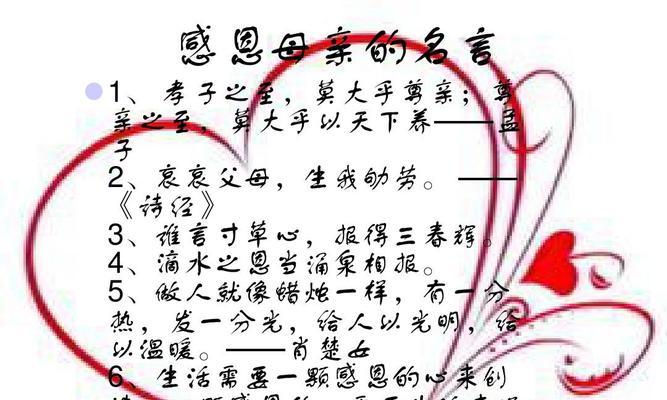 感恩母亲的名言
1、孝子之至，莫大乎尊亲；尊
亲之至，莫大乎以天下养——孟
子
2、哀哀父母，生我劬劳。——
《诗经》
3、谁言寸草心，报得三春辉。
4、滴水之恩当涌泉相报。
5、做人就像蜡烛一样，有一分
热，发一分光，给人以光明，给
以温暖。——肖楚女
6、生活需要一颗感恩的心来创